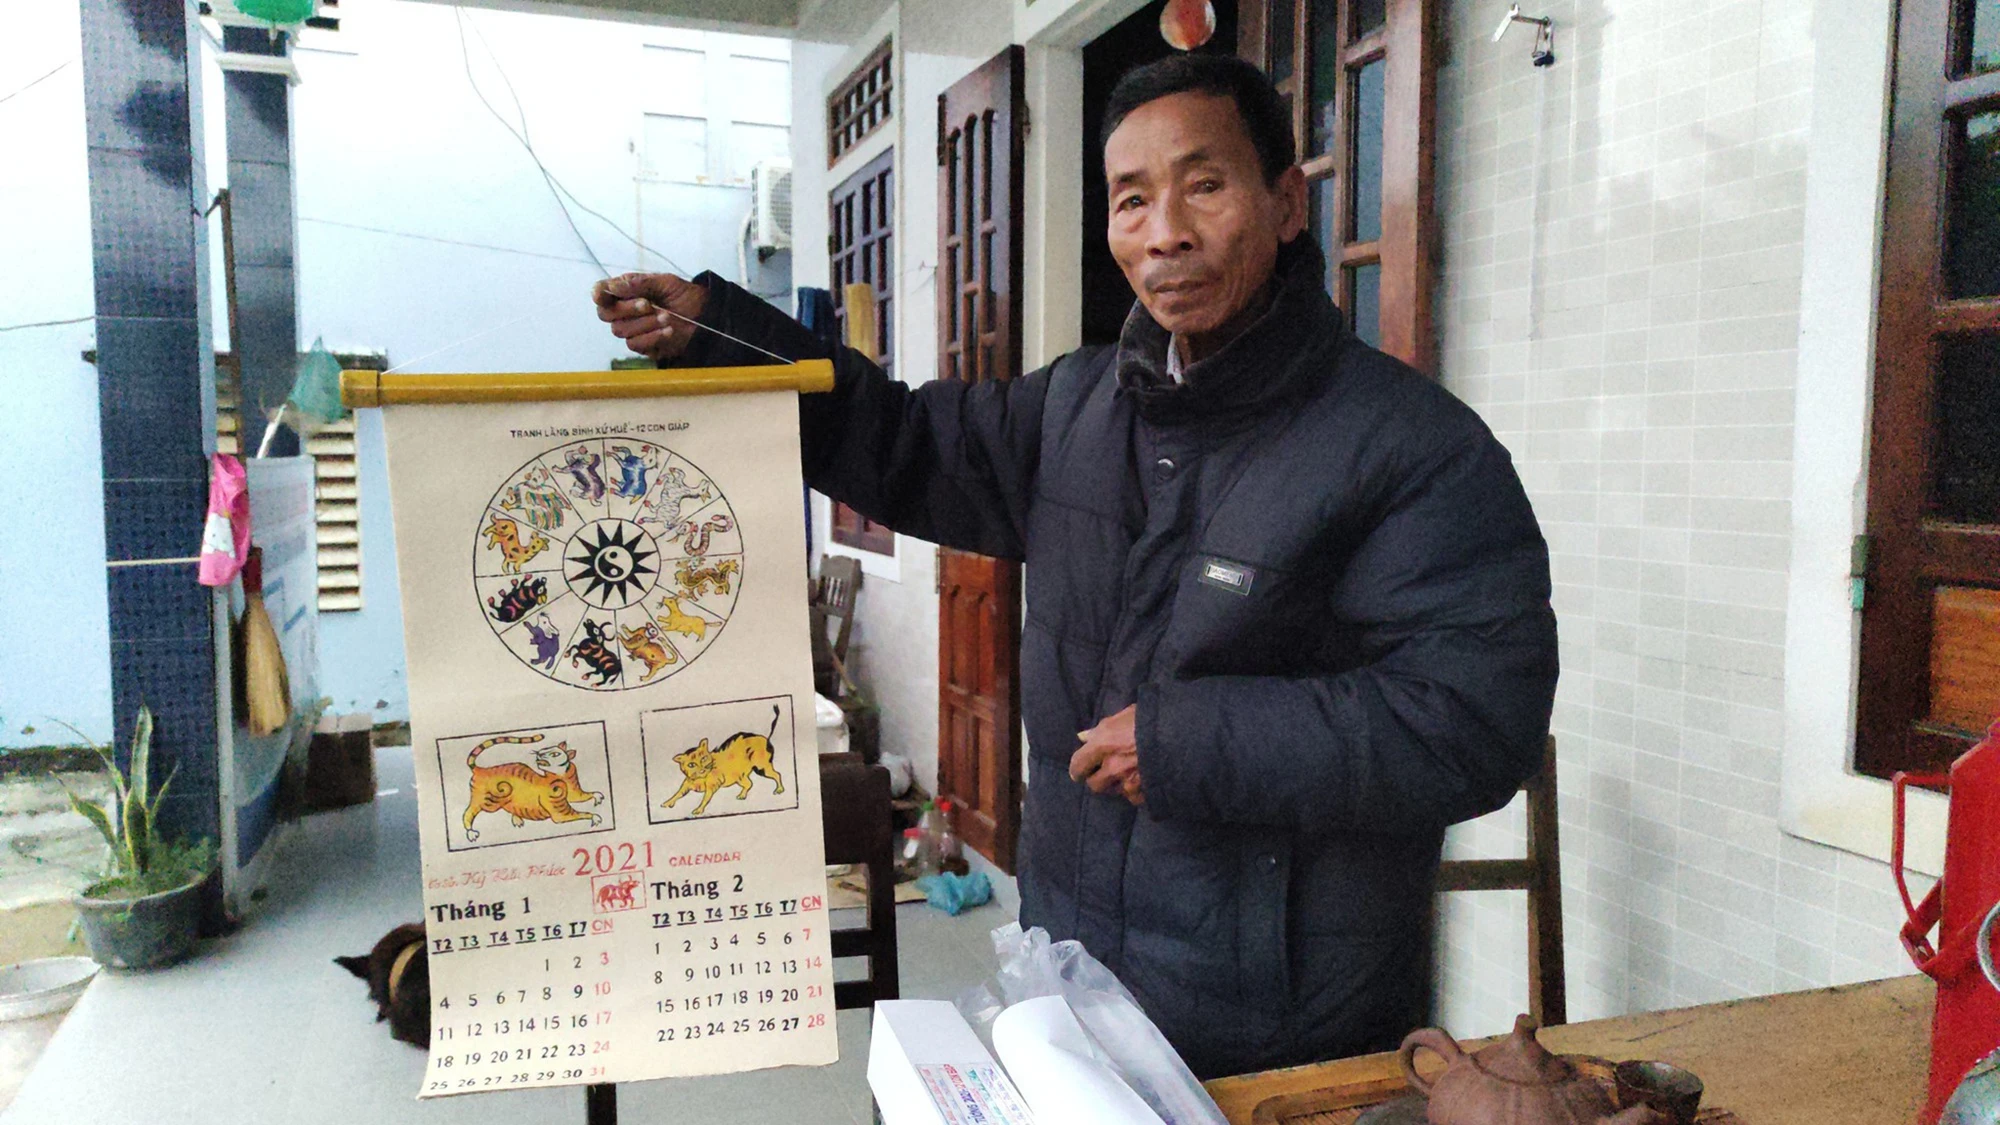 TRANH LÀNG SÌNH XỨ HUẾ - 12 CON GIÁP
2021 CALENDAR
Tháng 1
T2 T3 T4 T5 T6 T7 CN
1 2 3
4 5 6 7 8 9 10
11 12 13 14 15 16 17
18 19 20 21 22 23 24
25 26 27 28 29 30 31
Tháng 2
T2 T3 T4 T5 T6 T7 CN
1 2 3 4 5 6 7
8 9 10 11 12 13 14
15 16 17 18 19 20 21
22 23 24 25 26 27 28